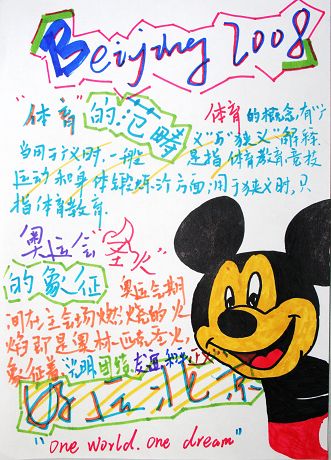 Beijing 2008
"体育"的范畴
体育的概念有"广
义"与"狭义"解释
当用于广义时,一般是指体育教育竞技
运动和身体锻炼三个方面;用于狭义时,只
指体育教育.
奥运会"圣火"
的象征
奥运会期
间在主会场燃烧的火
焰即是奥林匹克圣火,
象征着"光明团结友谊和平正义"
好运北京
"one world. one dream"